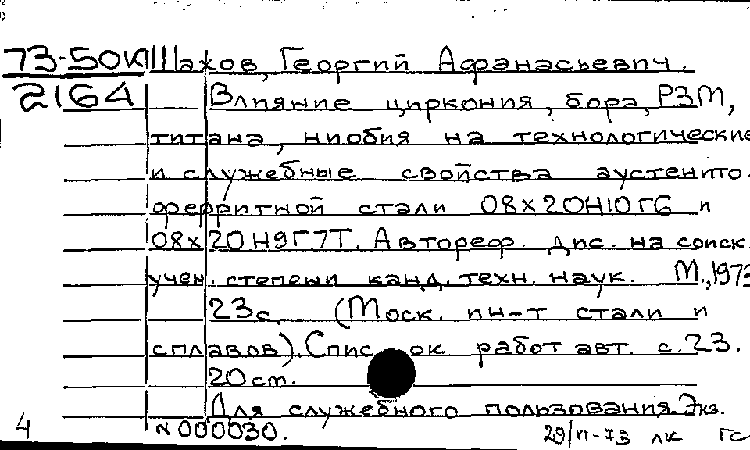 73-50К Шахов, Георгий Афанасьевич.
2164 Влияние циркония, бора, РЗМ,
титана, ниобия на технологические
и служебные свойства аустенито-
ферритной стали 08х20Н10Г6 и
08х20Н9Г7Т. Автореф. дис. на соиск.
учен. степени канд. техн. наук. М., 1973
23с. (Моск. ин-т стали и
сплавов). Список работ авт. с.23.
20см.
Для служебного пользования. Экз.
4 №000030. 29/VI-73 ЛК ГС